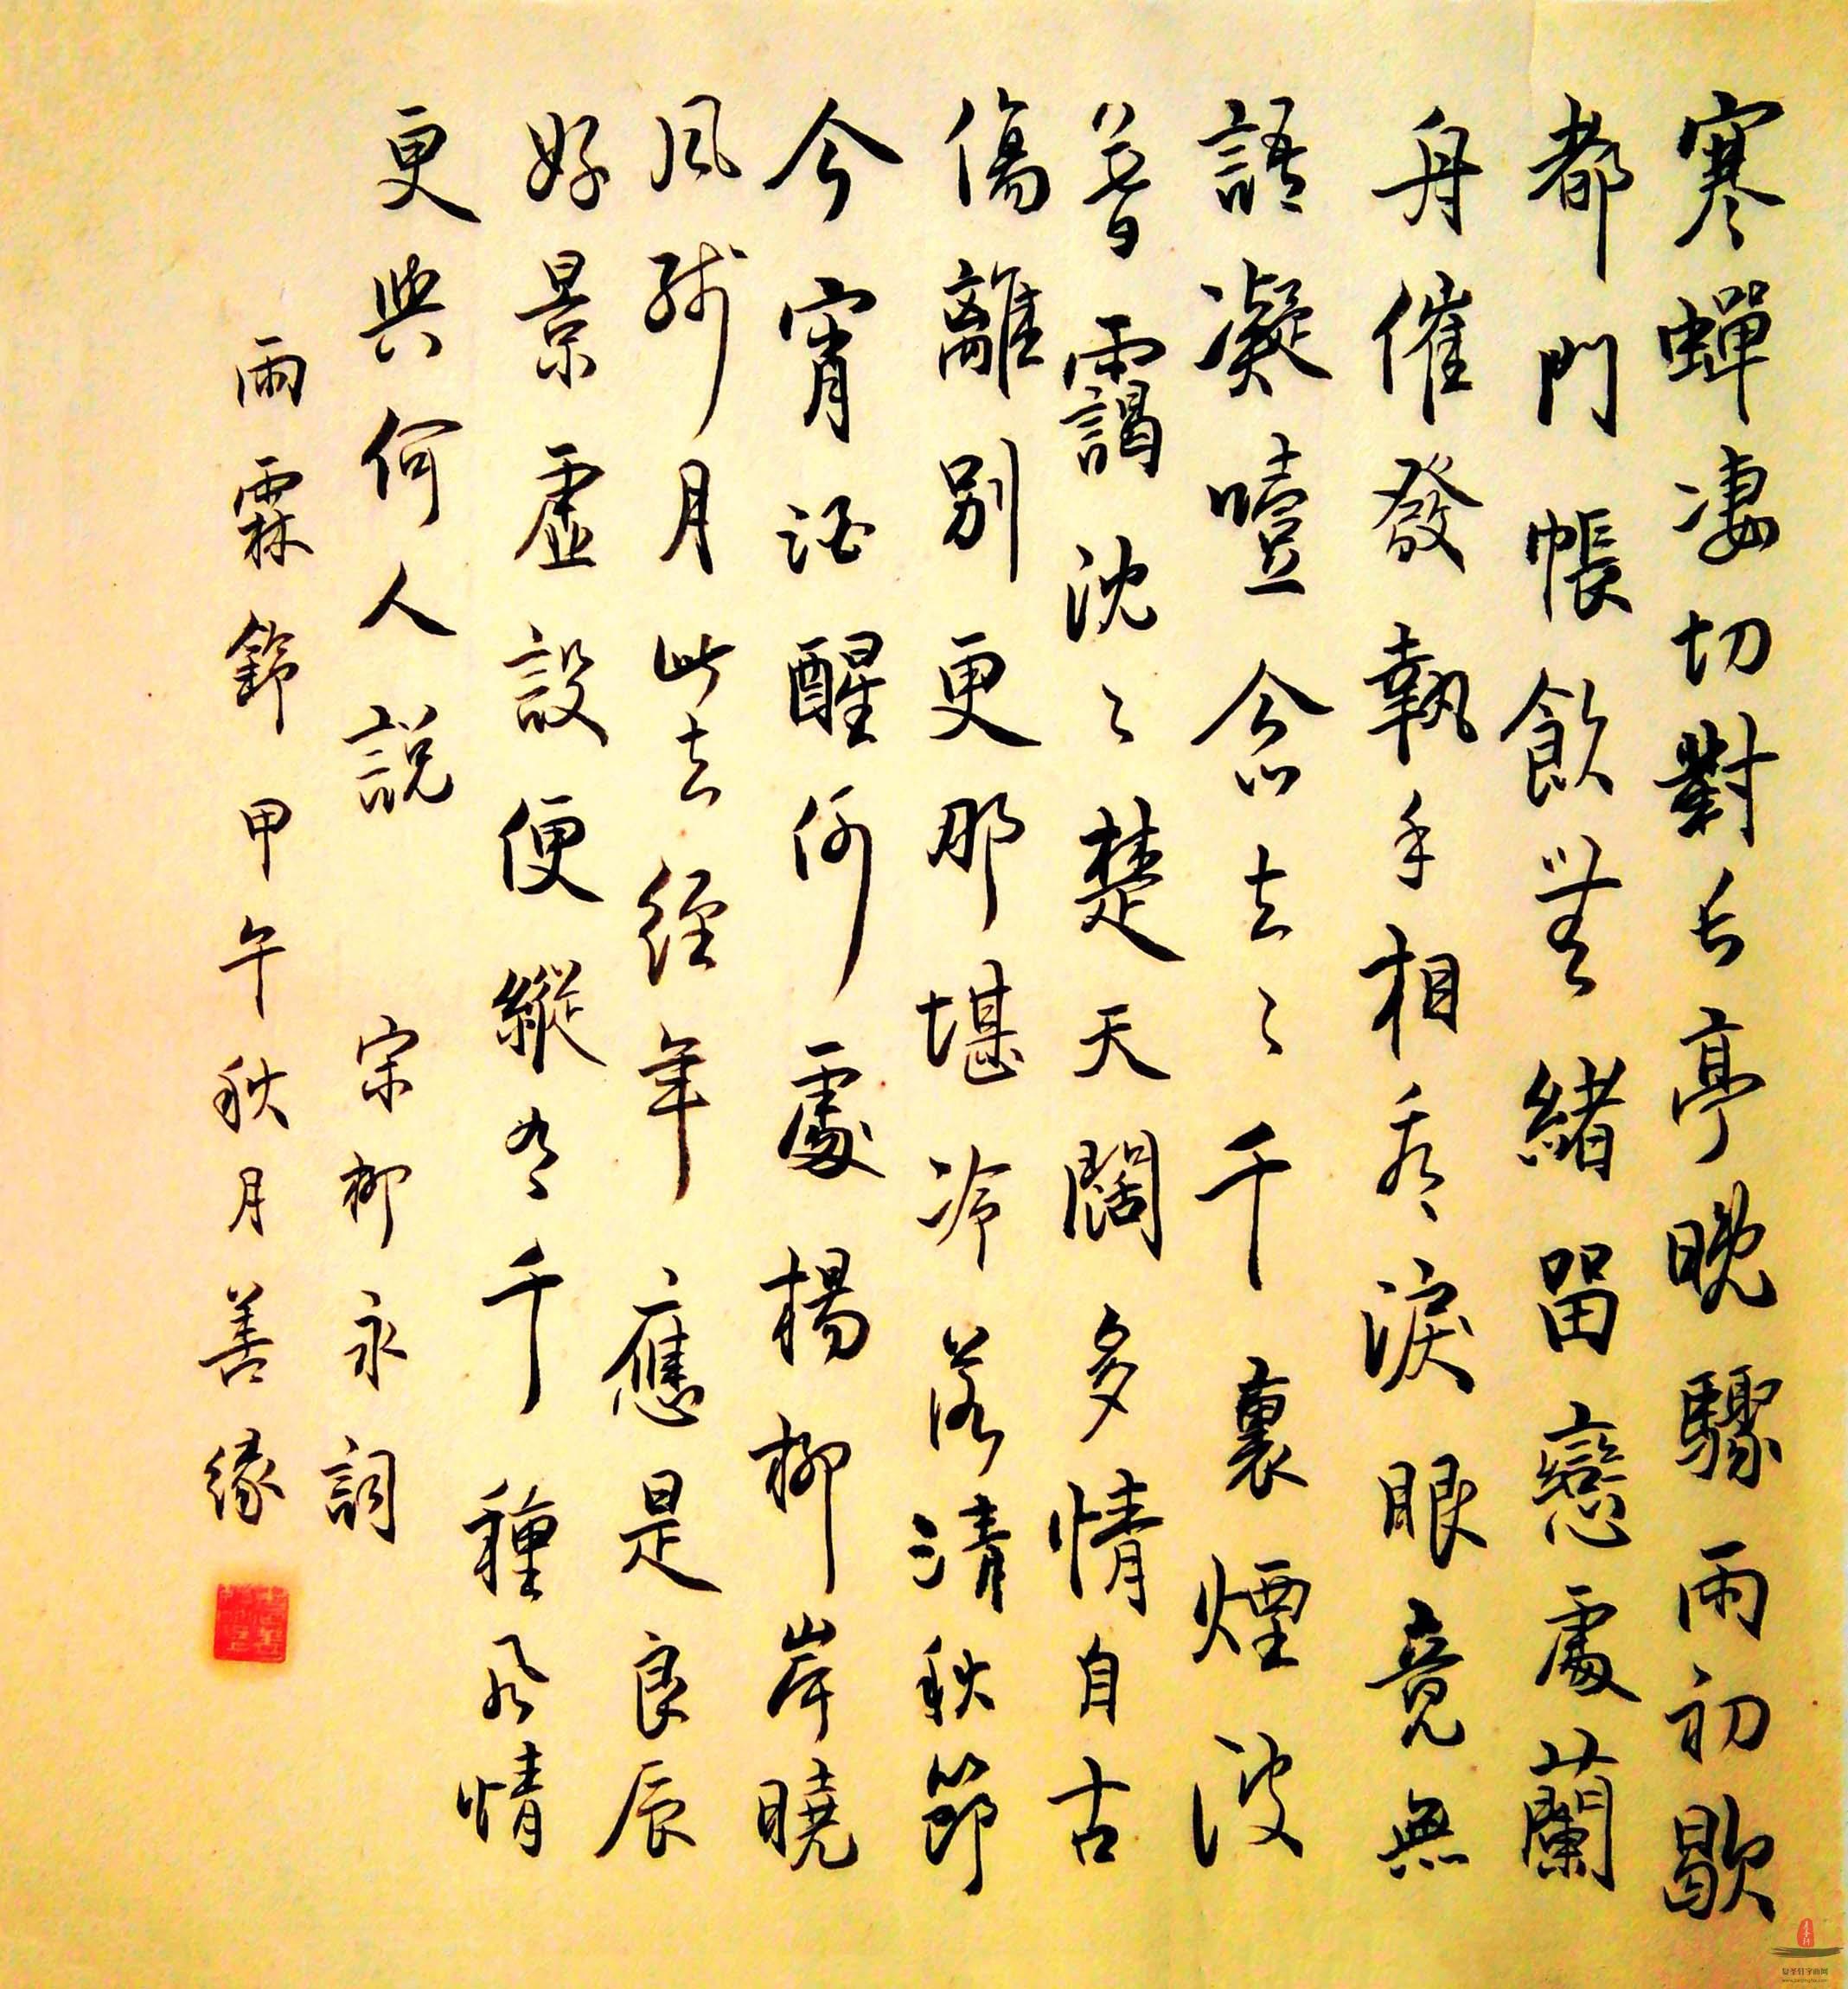 寒蟬凄切對長亭晚驟雨初歇
都門帳飲無緒留戀處蘭
舟催發執手相看淚眼竟無
語凝噎念去々千裏煙波
暮靄沈々楚天闊多情自古
傷離別更那堪冷落清秋節
今宵酒醒何處楊柳岸曉
風殘月此去經年應是良辰
好景虛設便縱有千種風情
更與何人說 宋柳永詞
雨霖鈴甲午秋月善緣